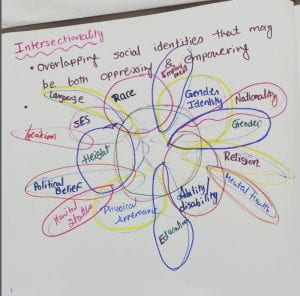 Intersectionality
• Overlapping social identities that may
be both oppressing & empowering
•
Language
Race
Gender
Identity
Nationality
Location
SES
Gender
Height
Religion
Political
Belief
Ability
disability
Mental Health
Marital
Status
Physical
Apperance
Education